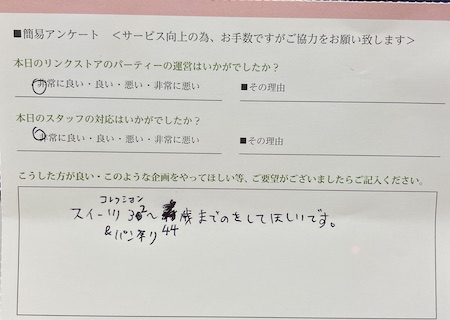 ■簡易アンケート ＜サービス向上の為、お手数ですがご協力をお願い致します＞
本日のリンクストアのパーティーの運営はいかがでしたか？
非常に良い・良い・悪い・非常に悪い ■その理由
本日のスタッフの対応はいかがでしたか？
非常に良い・良い・悪い・非常に悪い ■その理由
こうした方が良い・このような企画をやってほしい等、ご要望がございましたらご記入ください。
コレクション
スイーツ 32～歳までのをしてほしいです。
&パン祭り 44